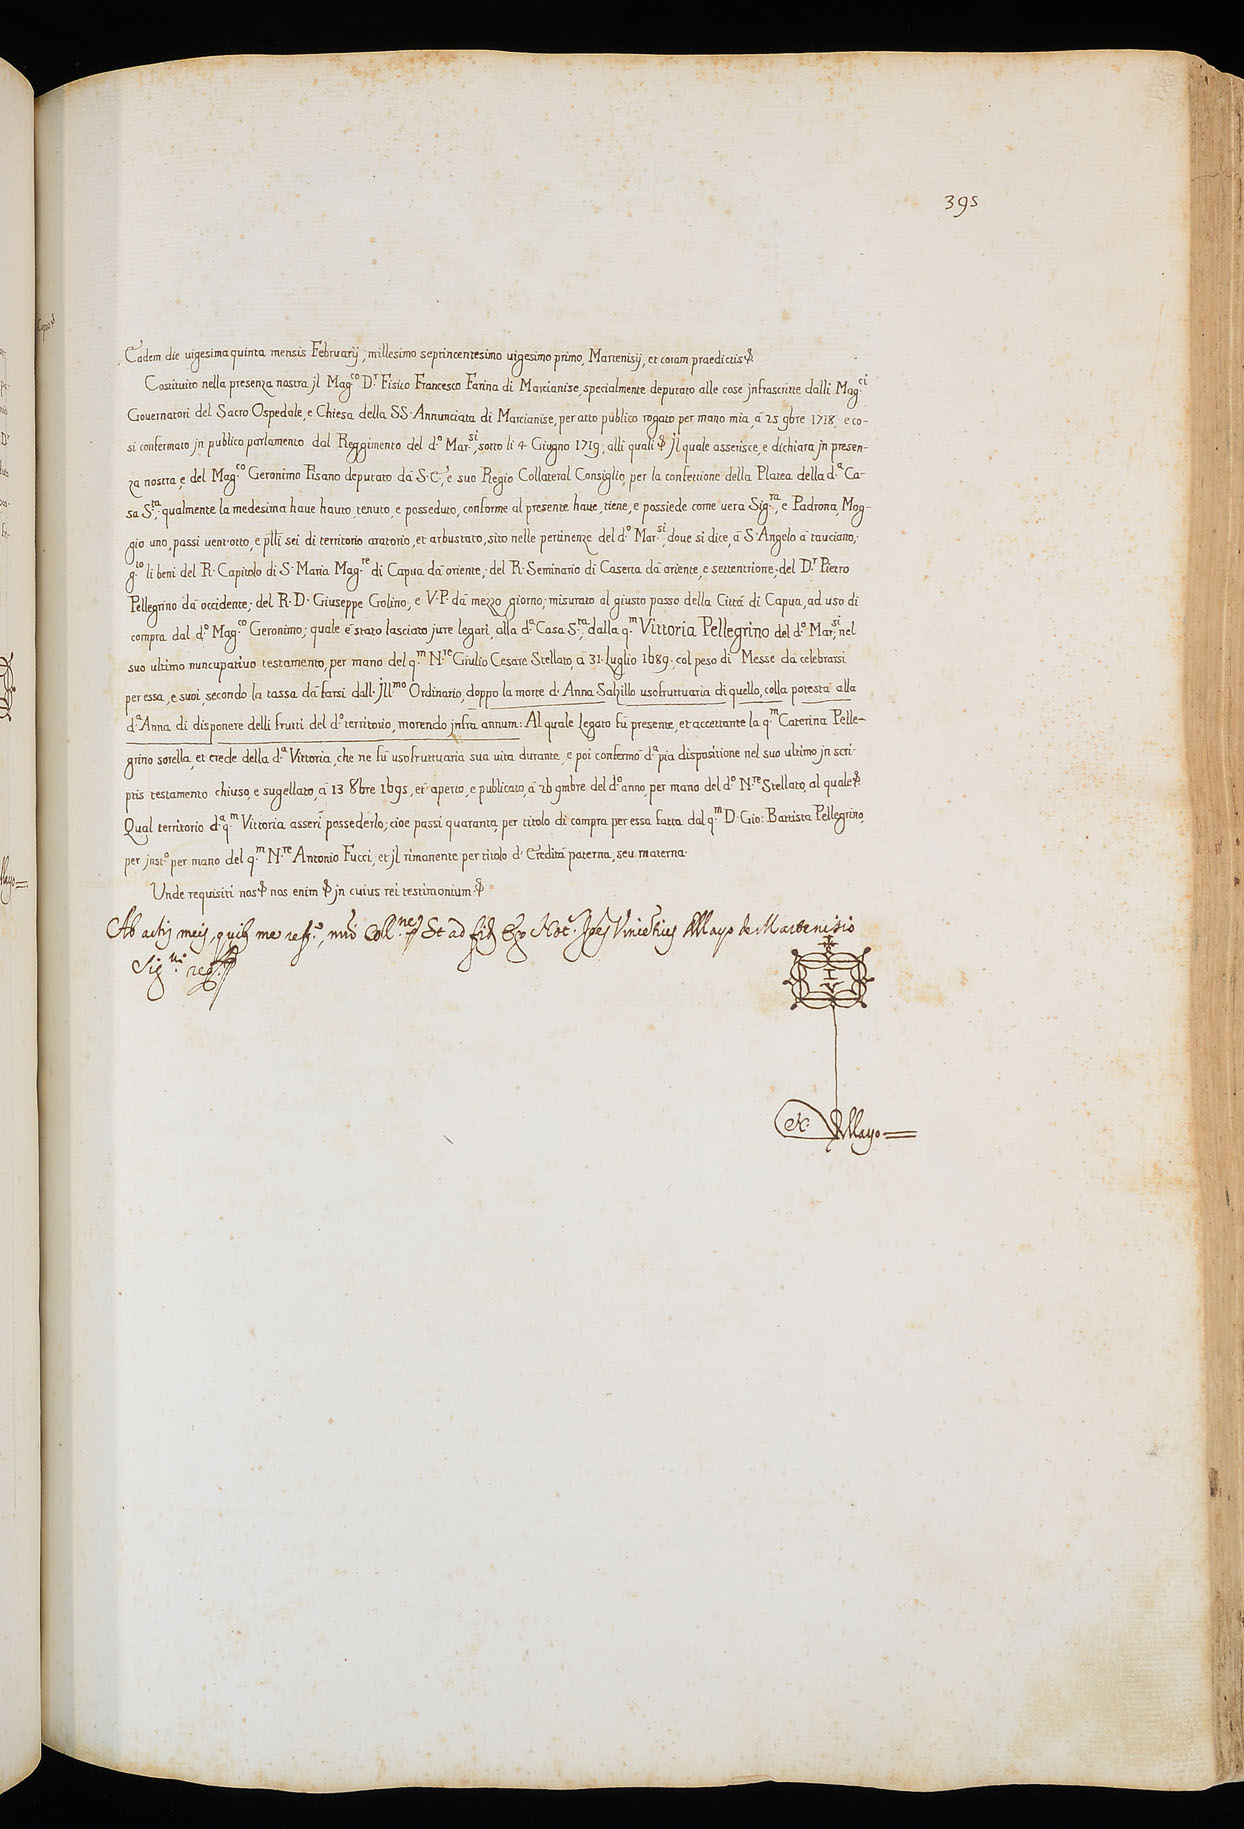 395
Eadem die uigesima quinta mensis Februarij, millesimo septincentesimo uigesimo primo, Martenisij, et coram praedictis &
Costituito nella presenza nostra jl Mag.co D.r Fisico Francesco Farina di Marcianise, specialmente deputato alle cose jnfrascritte dalli Mag.ci
Gouernatori del Sacro Ospedale, e Chiesa della SS. Annunciata di Marcianise, per atto publico rogato per mano mia, à 25 9bre 1718, e co-
si confermato jn publico parlamento dal Reggimento del d.o Mar.si, sotto li 4 Giugno 1719, alli quali & Jl quale asserisce, e dichiara jn presen-
za nostra, e del Mag.co Geronimo Pisano deputato dà S.C., e suo Regio Collateral Consiglio, per la confettione della Platea della d.a Ca-
sa S.ta, qualmente la medesima haue hauto, tenuto, e posseduto, conforme al presente haue, tiene, e possiede come uera Sig.ra, e Padrona, Mog-
gio uno, passi uent'otto, e p̄lli sei di territorio aratorio, et arbustato, sito nelle pertinenze del d.o Mar.si, doue si dice, à S. Angelo à tauciano,
g.to li beni del R. Capitolo di S. Maria Mag.re di Capua dà oriente, del R. Seminario di Caserta dà oriente, e settentrione, del D.r Pietro
Pellegrino dà occidente; del R. D. Giuseppe Golino, e V. P. dà mezzo giorno; misurato al giusto passo della Città di Capua, ad uso di
compra dal d.o Mag.co Geronimo; quale è stato lasciato jure legati, alla d.a Casa S.ta, dalla q.m Vittoria Pellegrino del d.o Mar.si, nel
suo ultimo nuncupatiuo testamento, per mano del q.m N.re Giulio Cesare Stellato, à 31. Luglio 1689. col peso di Messe da celebrarsi
per essa, e suoi, secondo la tassa dà farsi dall. Jll.mo Ordinario, doppo la morte d. Anna Salzillo usofruttuaria di quello, colla potestà alla
d.a Anna di disponere delli frutti del d.o territorio, morendo jnfra annum: Al quale Legato fù presente, et accettante la q.m Caterina Pelle-
grino sorella, et erede della d.a Vittoria, che ne fù usofruttuaria sua uita durante, e poi confermò d.a pia dispositione nel suo ultimo jn scri-
ptis testamento chiuso, e sugellato, à 13 8bre 1695, et aperto, e publicato, à 26 9mbre del d.o anno, per mano del d.o N.re Stellato, al quale &
Qual territorio d.a q.m Vittoria asserì possederlo; cioe passi quaranta, per titolo di compra per essa fatta dal q.m D. Gio: Battista Pellegrino,
per jnst.o per mano del q.m N.re Antonio Fucci, et jl rimanente per titolo d' Eredità paterna, seu materna.
Unde requisiti nos & nos enim & jn cuius rei testimonium &
Ab actis meis, quib me ref.o, mei Coll.ne Et ad fid. Ego Not. Joes Vincetius de Mayo de Martenisio
Sig.ui reg.
I V
N. de Mayo